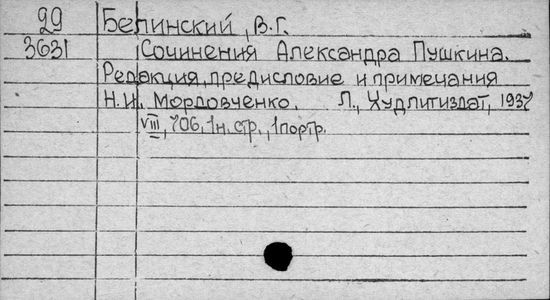 29 Белинский, В.Г.
3631 Сочинения Александра Пушкина.
Редакция, предисловие и примечания
Н.И. Мордовченко. Л., Худлитиздат, 1937
VIII, 706, 1н. стр., 1портр.